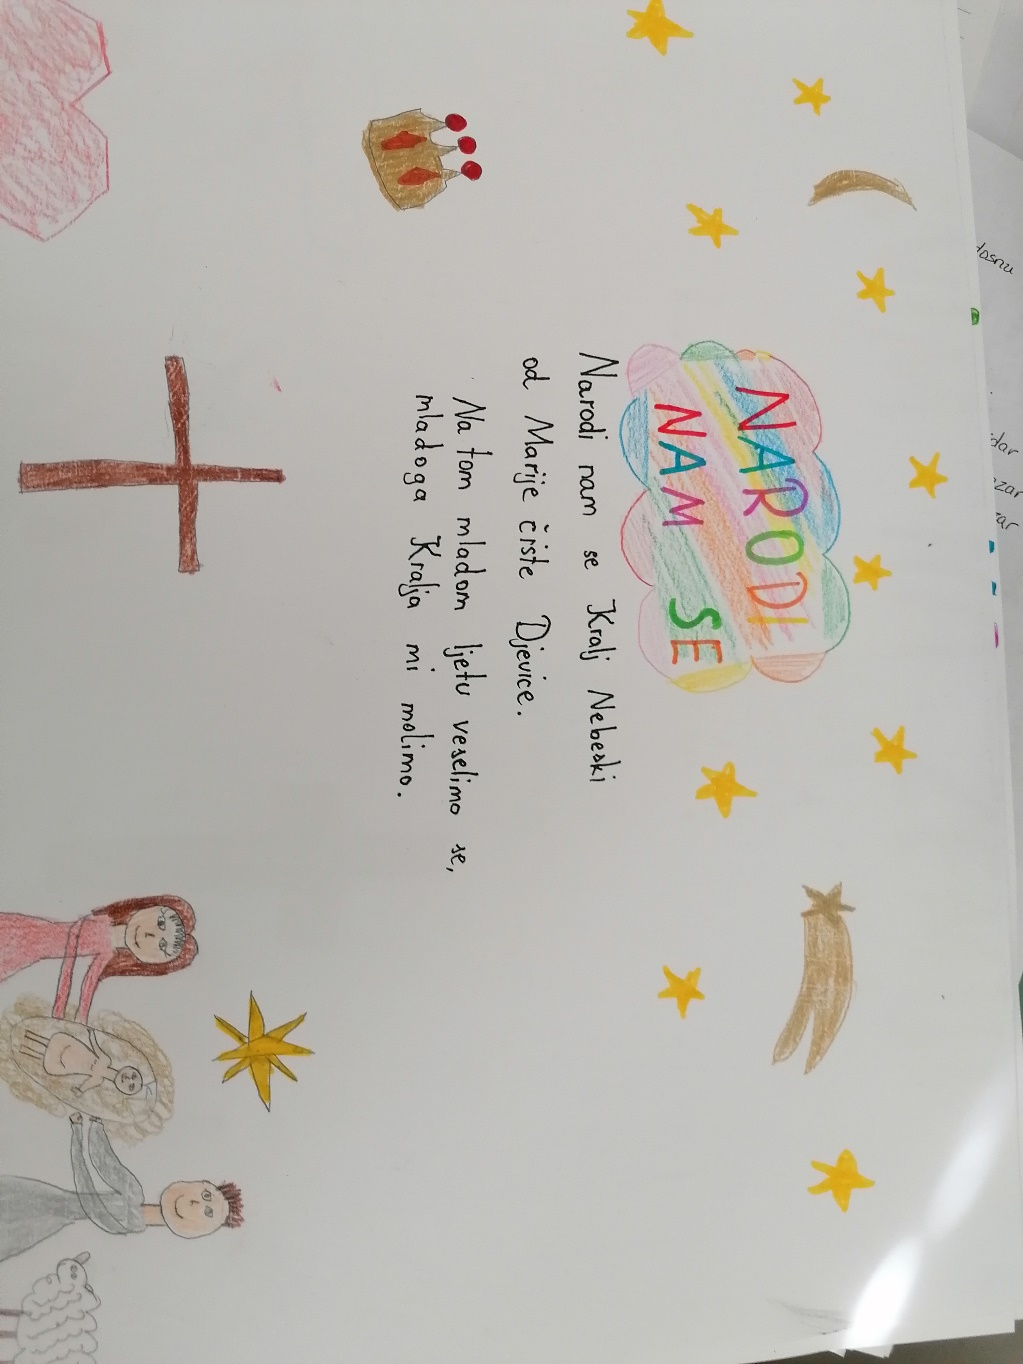 NARODI
NAM SE
Narodi nam se Kralj Nebeski
od Marije čiste Djevice.
Na tom mladom ljetu veselimo se,
mladoga Kralja mi molimo.
dar
zar
zar